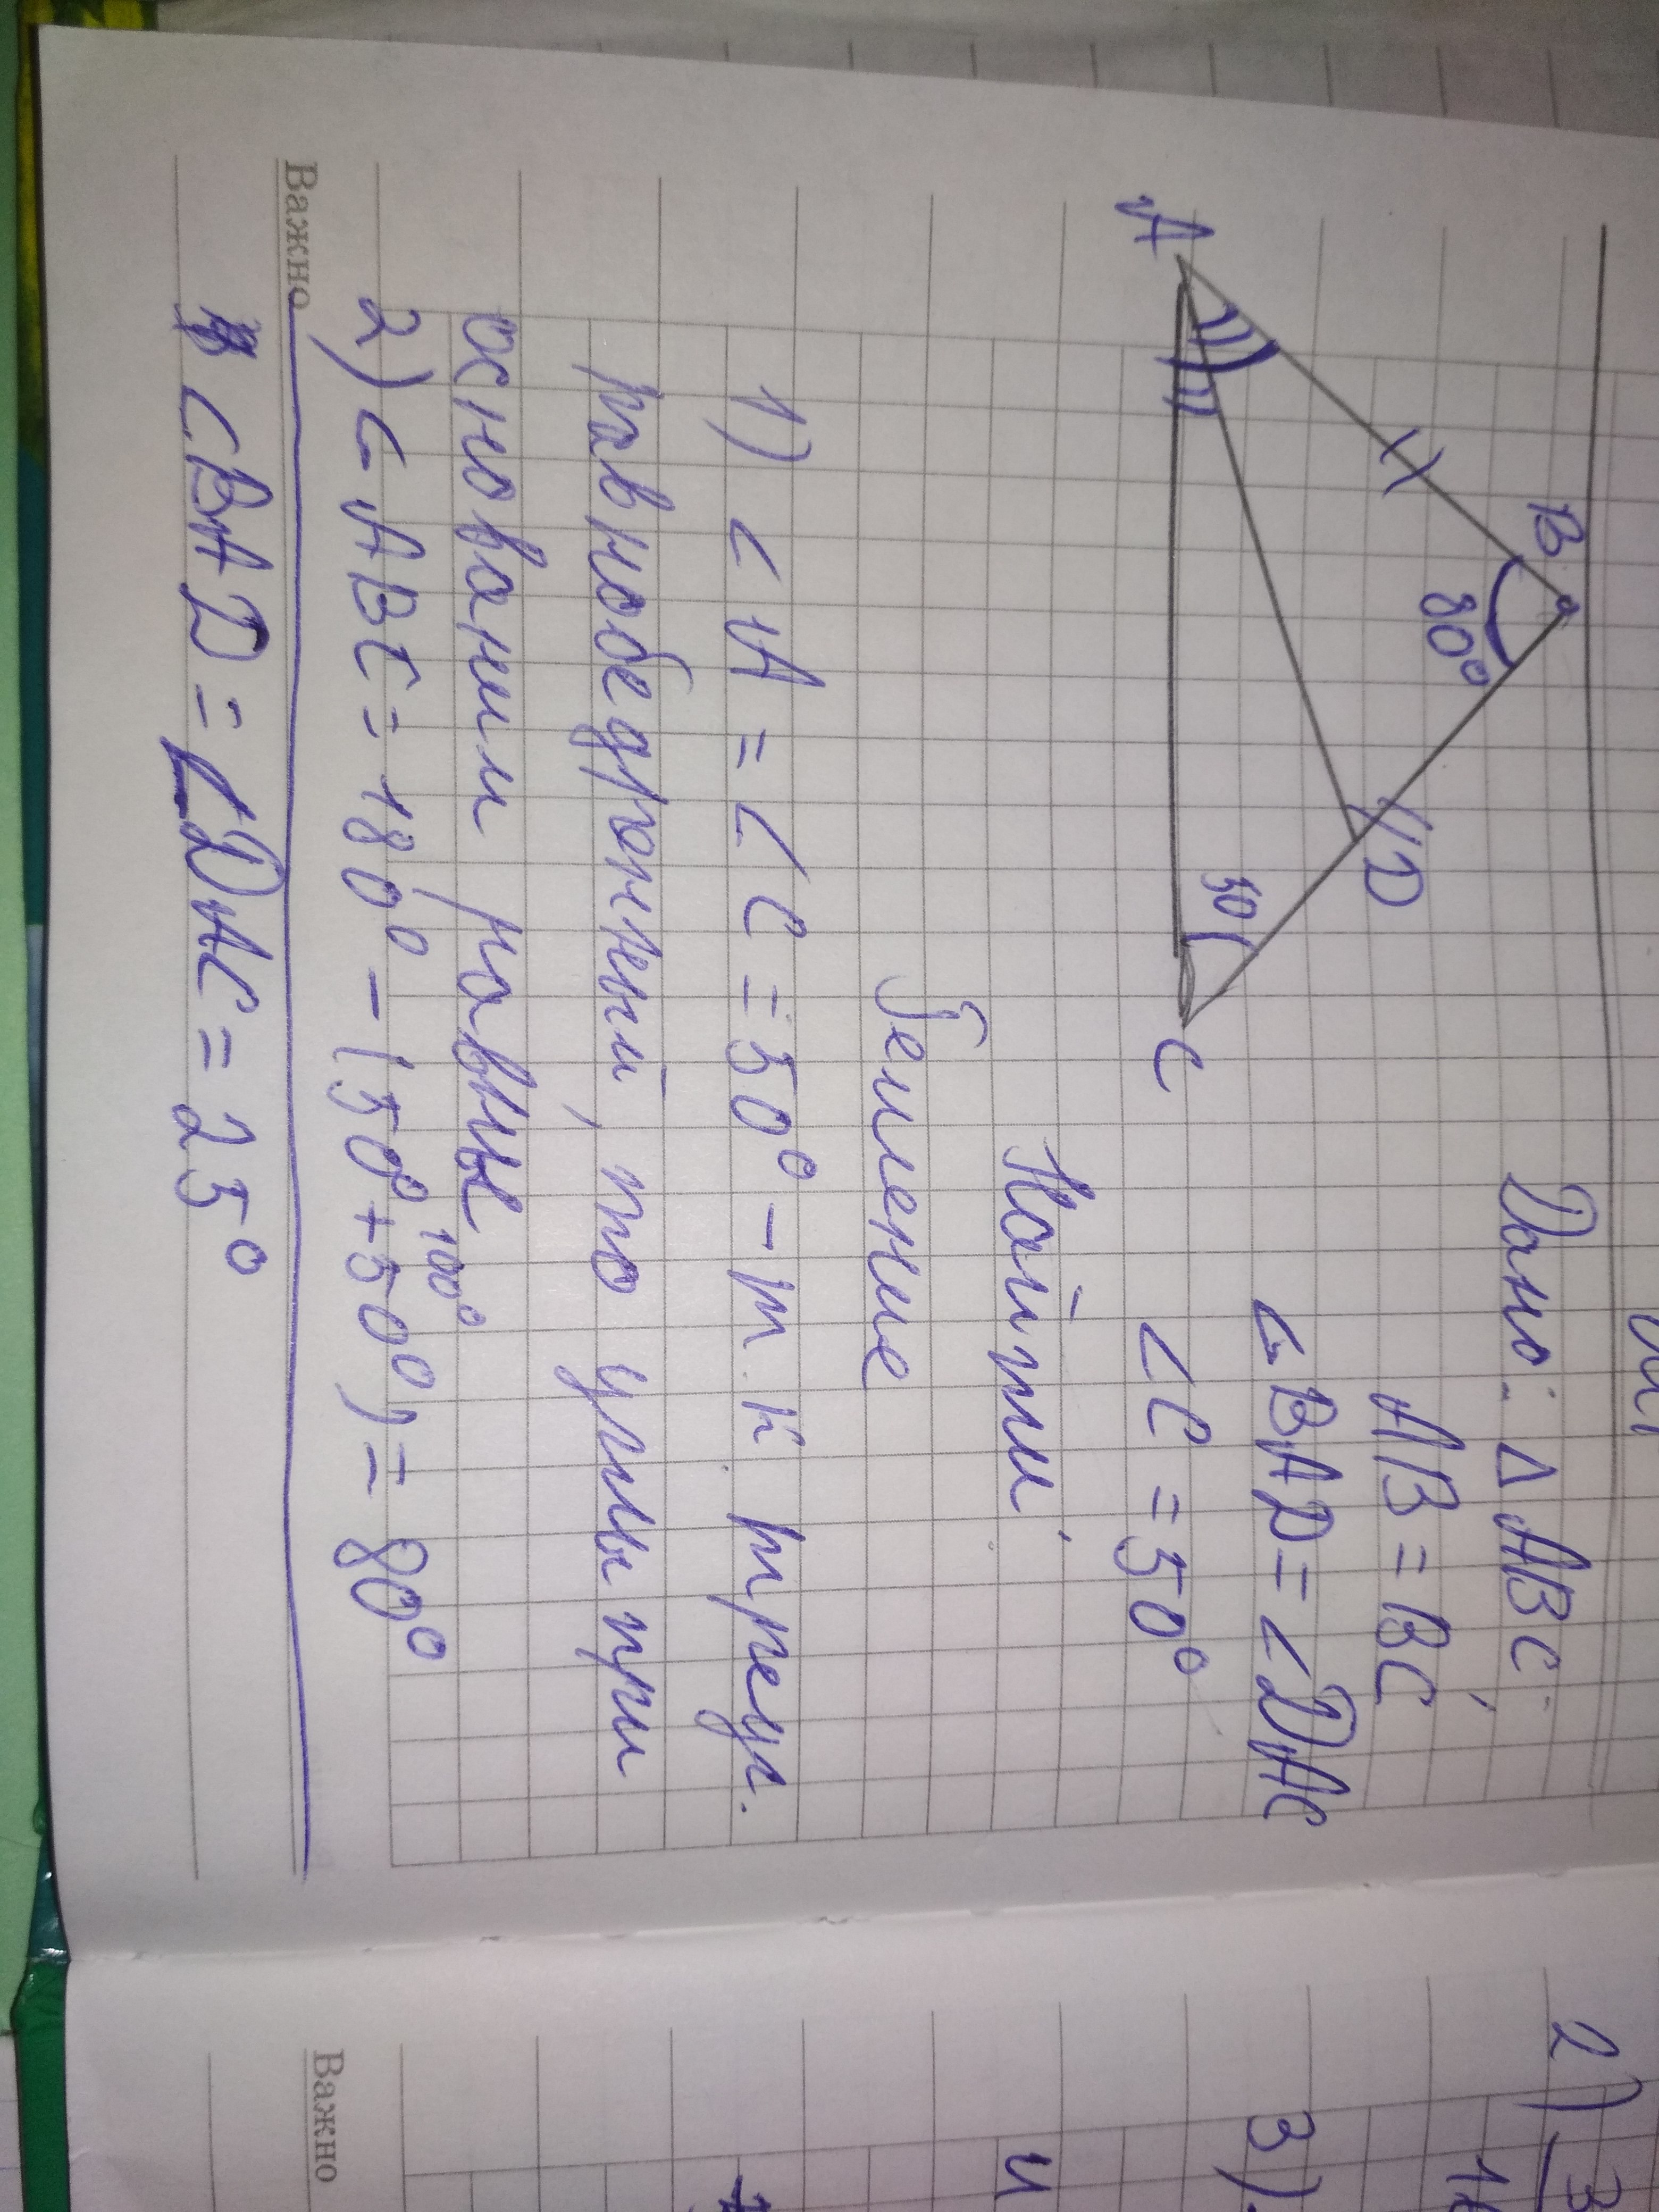 Дано: △ABC
AB = BC,
∠BAD = ∠DAC
∠C = 50°
Найти,
B
80°
D
A
50
C
Решение
1) ∠A = ∠C = 50° - т.к треуг.
равнобедренный, то углы при
основании равны
100°
2) ∠ABC = 180° - (50°+50°) = 80°
Важно
∠BAD = ∠DAC = 25°
2)
3)
и
Важно